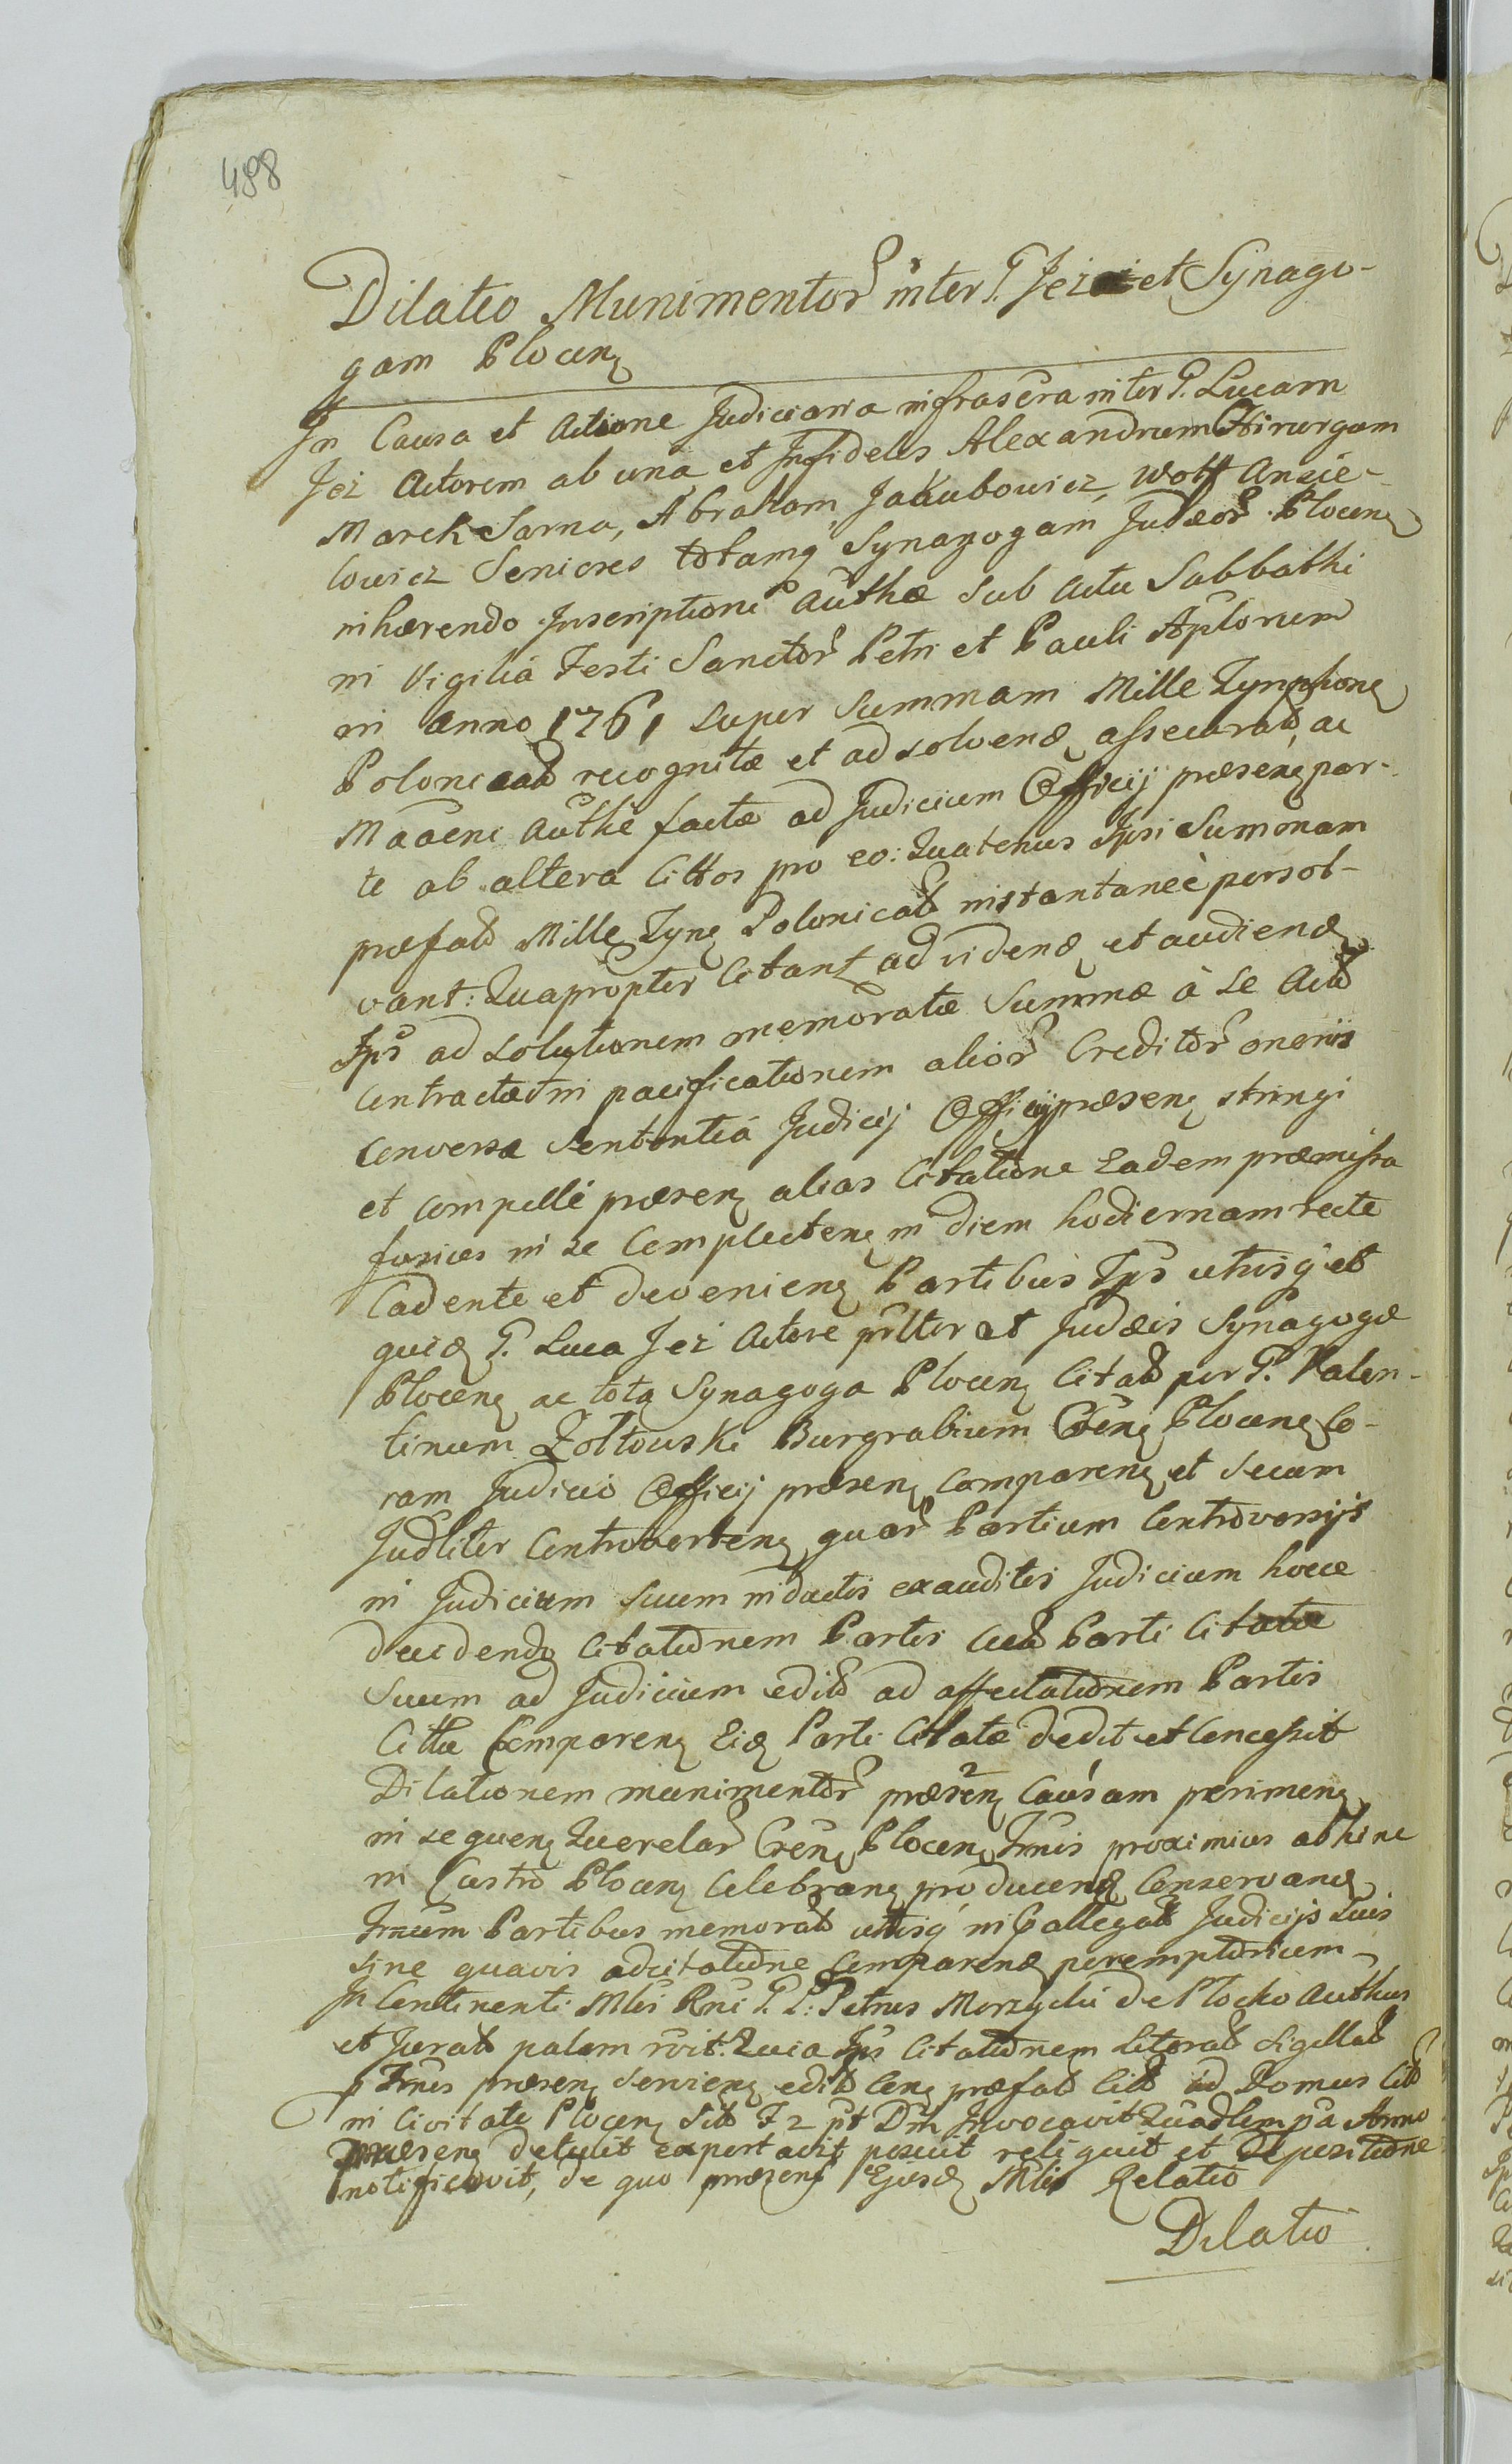 498
Dilatio Munimentor inter G. Jeż et Synago-
gam Plocen
In Causa et Actione Judiciaria infrascra inter G. Lucam
Jeż Actorem ab una et Infideles Alexandrum Chirurgum
Marek Sarna, Abraham Jakubowicz, Wolff Anzie-
lowicz Seniores totamq Synagogam Judæor Plocen
inhærendo Inscriptioni Authæ sub Actu Sabbathi
in Vigilia Festi Sanctor Petri et Pauli Aplorum
in Anno 1761 super Summam Mille Tynphone
Polonicał recognitæ et ad solvend assecurat, ac
authe factæ ad Judicium Officij præsen par-
te ab altera Cittos pro eo: Quatenus Ipsi Summam
præfat Mille Tyn Polonical instantanee persol-
vant: Quapropter Citant ad videnд et audiend
Ips ad solutionem memoratæ Summæ à se Act
Contractæ in pacificationem alior Creditor oneris
conversa Sententiá Judicij Officij præsen stringi
et compelli præsen alias Citatione Eadem præmissa
fusius in se Complecten in diem hodiernam recte
Cadente et devenien Partibus Ips utrisq et
quid G. Luca Jeż Actore pnlter et Judæis Synagogæ
Plocen ac tota Synagoga Plocen Citat per G. Valen-
tinum Zołtowski Burgrabium Cren Plocen Co-
ram Judicio Officij præsen comparen et secum
Judliter Controverten quar Partium Controversijs
in Judicium suum inductis exauditis Judicium hocce
decidendo Citationem Partis Act Parti Citatæ
suum ad Judicium edit ad affectationem Partis
Cittæ Comparen Eid Parti Citatæ dedit et Concessit
Dilationem munimentor præsen Causam perimen
in sequen Querelar Cren Plocen Trnis proximius abhinc
in Castro Plocen Celebran producend Conservand
Trnum Partibus memorat utrisq in allegat Judicijs suis
sine quavis adcitatione comparend peremptorium
In Continenti Mlis Rni G. P: Petrus Morzycki de Płocko Authus
et Jurat palam rvit. Quia Ips Citationem Literat Sigillat
p Trnis præsen Servien edit Con præfat Citt ad Domus Citt
in Civitate Plocen Sit F 2 pt Dm Invocavit Quadlem pa Anno
præsen detulit exportavit posuit reliquit et De positione
notificavit, de quo præsens Ejusd Mlis Relatio
Dilatio